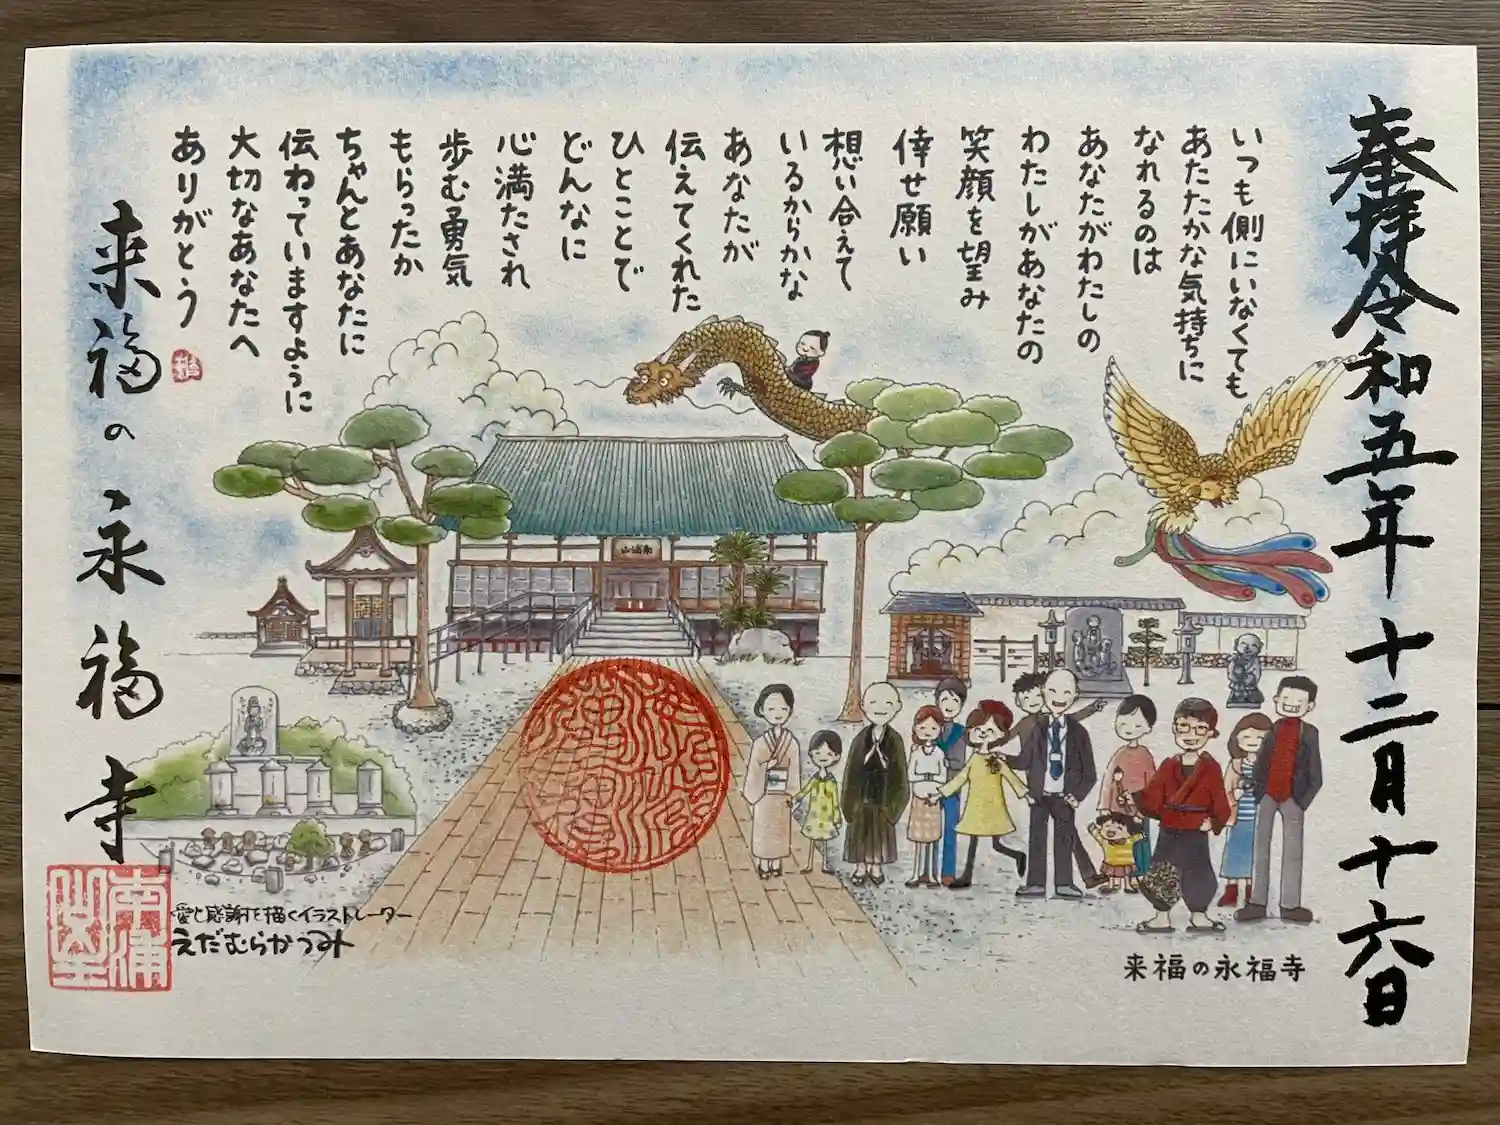 奉拝 令和五年十二月十六日
いつも側にいなくても
あたたかな気持ちに
なれるのは
あなたがわたしの
わたしがあなたの
笑顔を望み
倖せ願い
想い合えて
いるからかな
あなたが
伝えてくれた
ひとことで
どんなに
心満たされ
歩む勇気
もらったか
ちゃんとあなたに
伝わっていますように
大切なあなたへ
ありがとう
来福の永福寺
愛と感謝を描くイラストレーター
えだむらかつみ
来福の永福寺